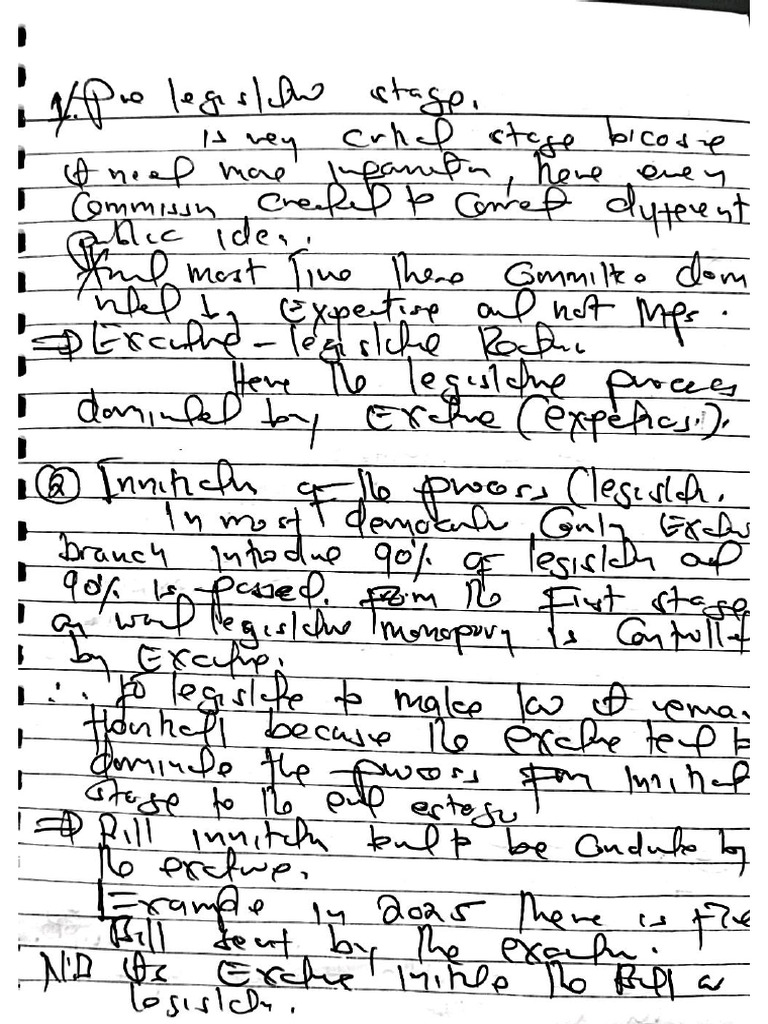 1. Pre legislative stage.
is very critical stage bicose
it need more information, here every
Commission created to connect different
public idea.
And most time these Committee dom
nated by Expertise and not Mps.
⇒ Executive - legislative
Here the legislative process
dominated by Exctive (expetices).
② Innitiation of the process (legislation.
In most democratic Only Exctive
branch introdue 90% of legislation and
90% is passed. From the First stage
on ward legislative monopory is Controlled
by Exctive.
∴ to legislate to make law it remai
because the exctive tend to
dominate the process from innitial
stage to the end estage
⇒ Bill innitiation tend to be Conducte by
the exctive.
Example in 2025 there is five
Bill sent by the exective.
N.B As Exctive initite the Bill a
legislation.